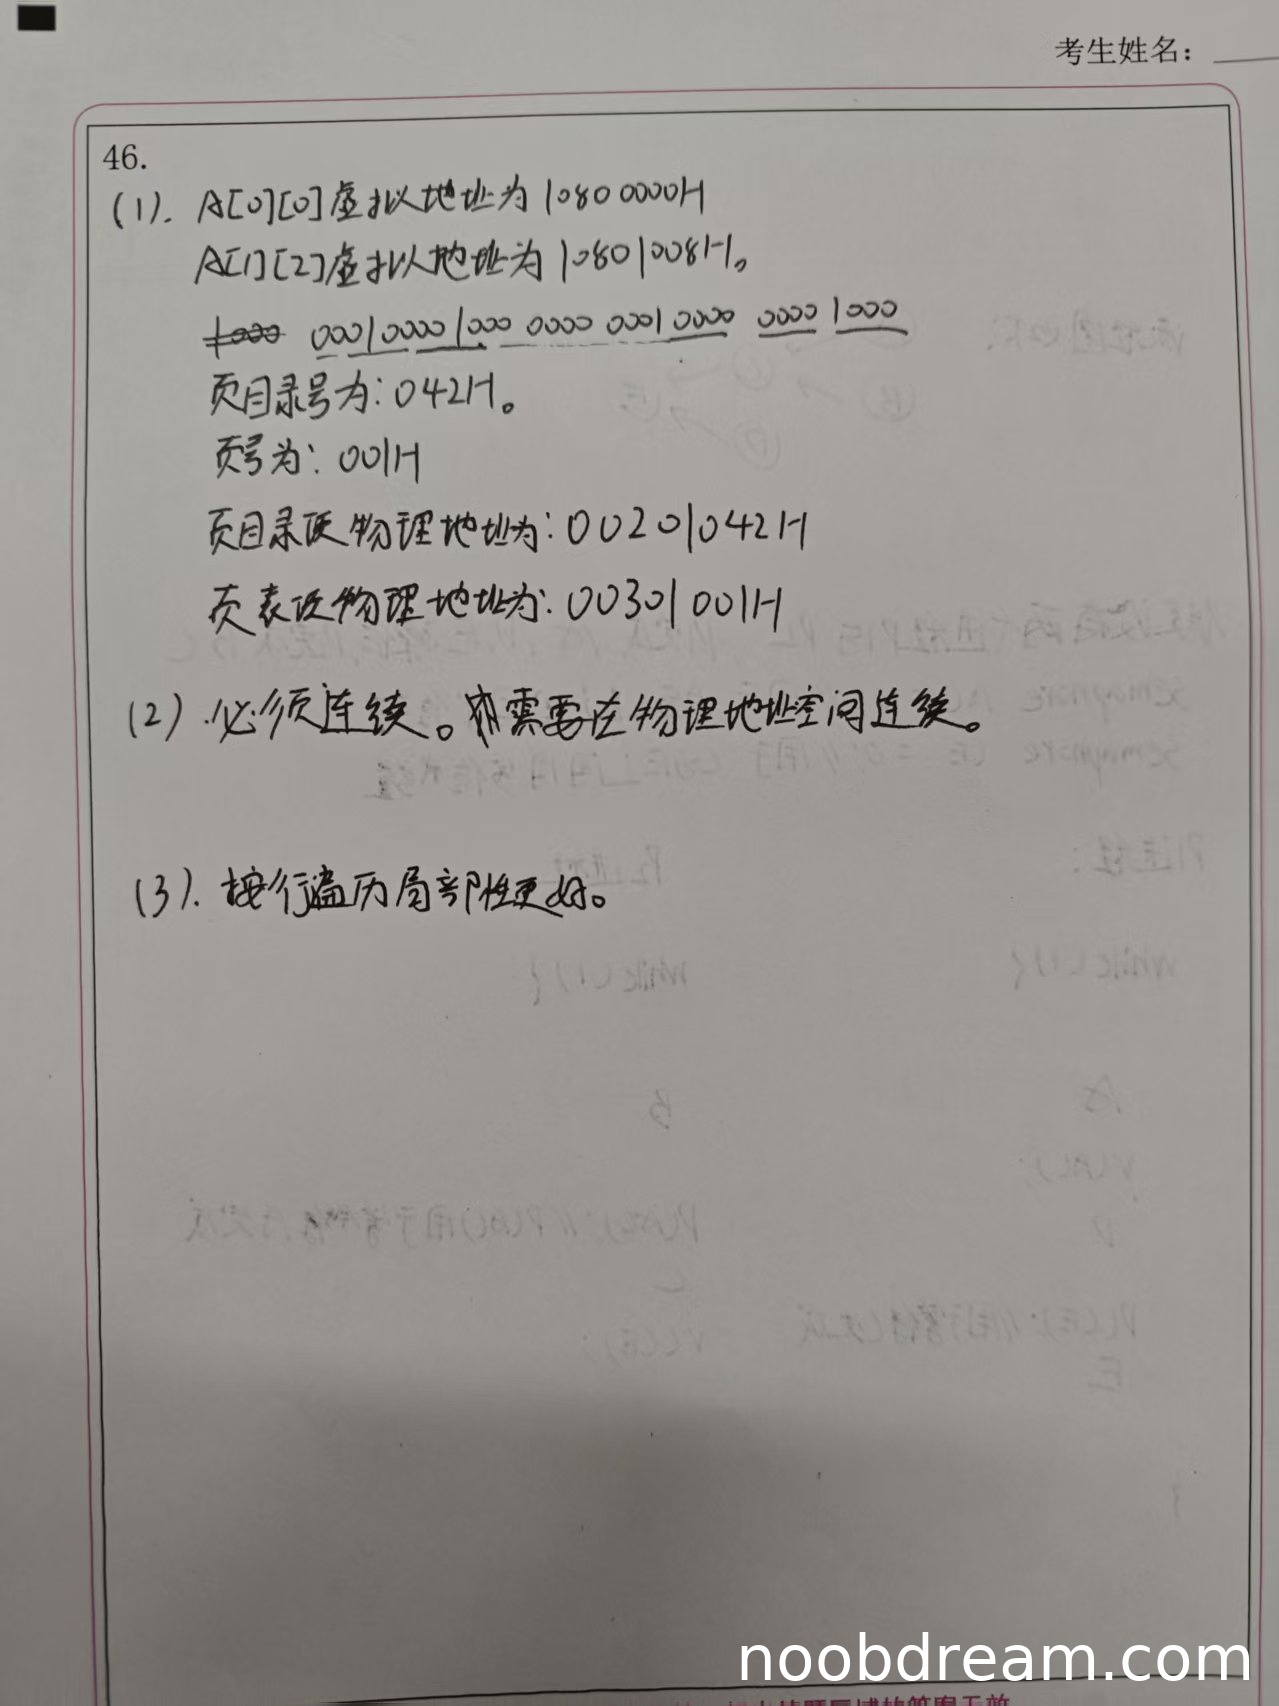 考生姓名：
46.
(1). A[0][0]虚拟地址为 1080 0000H
A[1][2]虚拟地址为 10801008H。
1000 0001 0000 1000 0000 0001 0000 0000 1000
页目录号为：042H。
页号为：001H
页目录项物理地址为：00201042H
页表项物理地址为：00301001H
(2) 必须连续。需要在物理地址空间连续。
(3). 按行遍历局部性更好。
noobdream.com